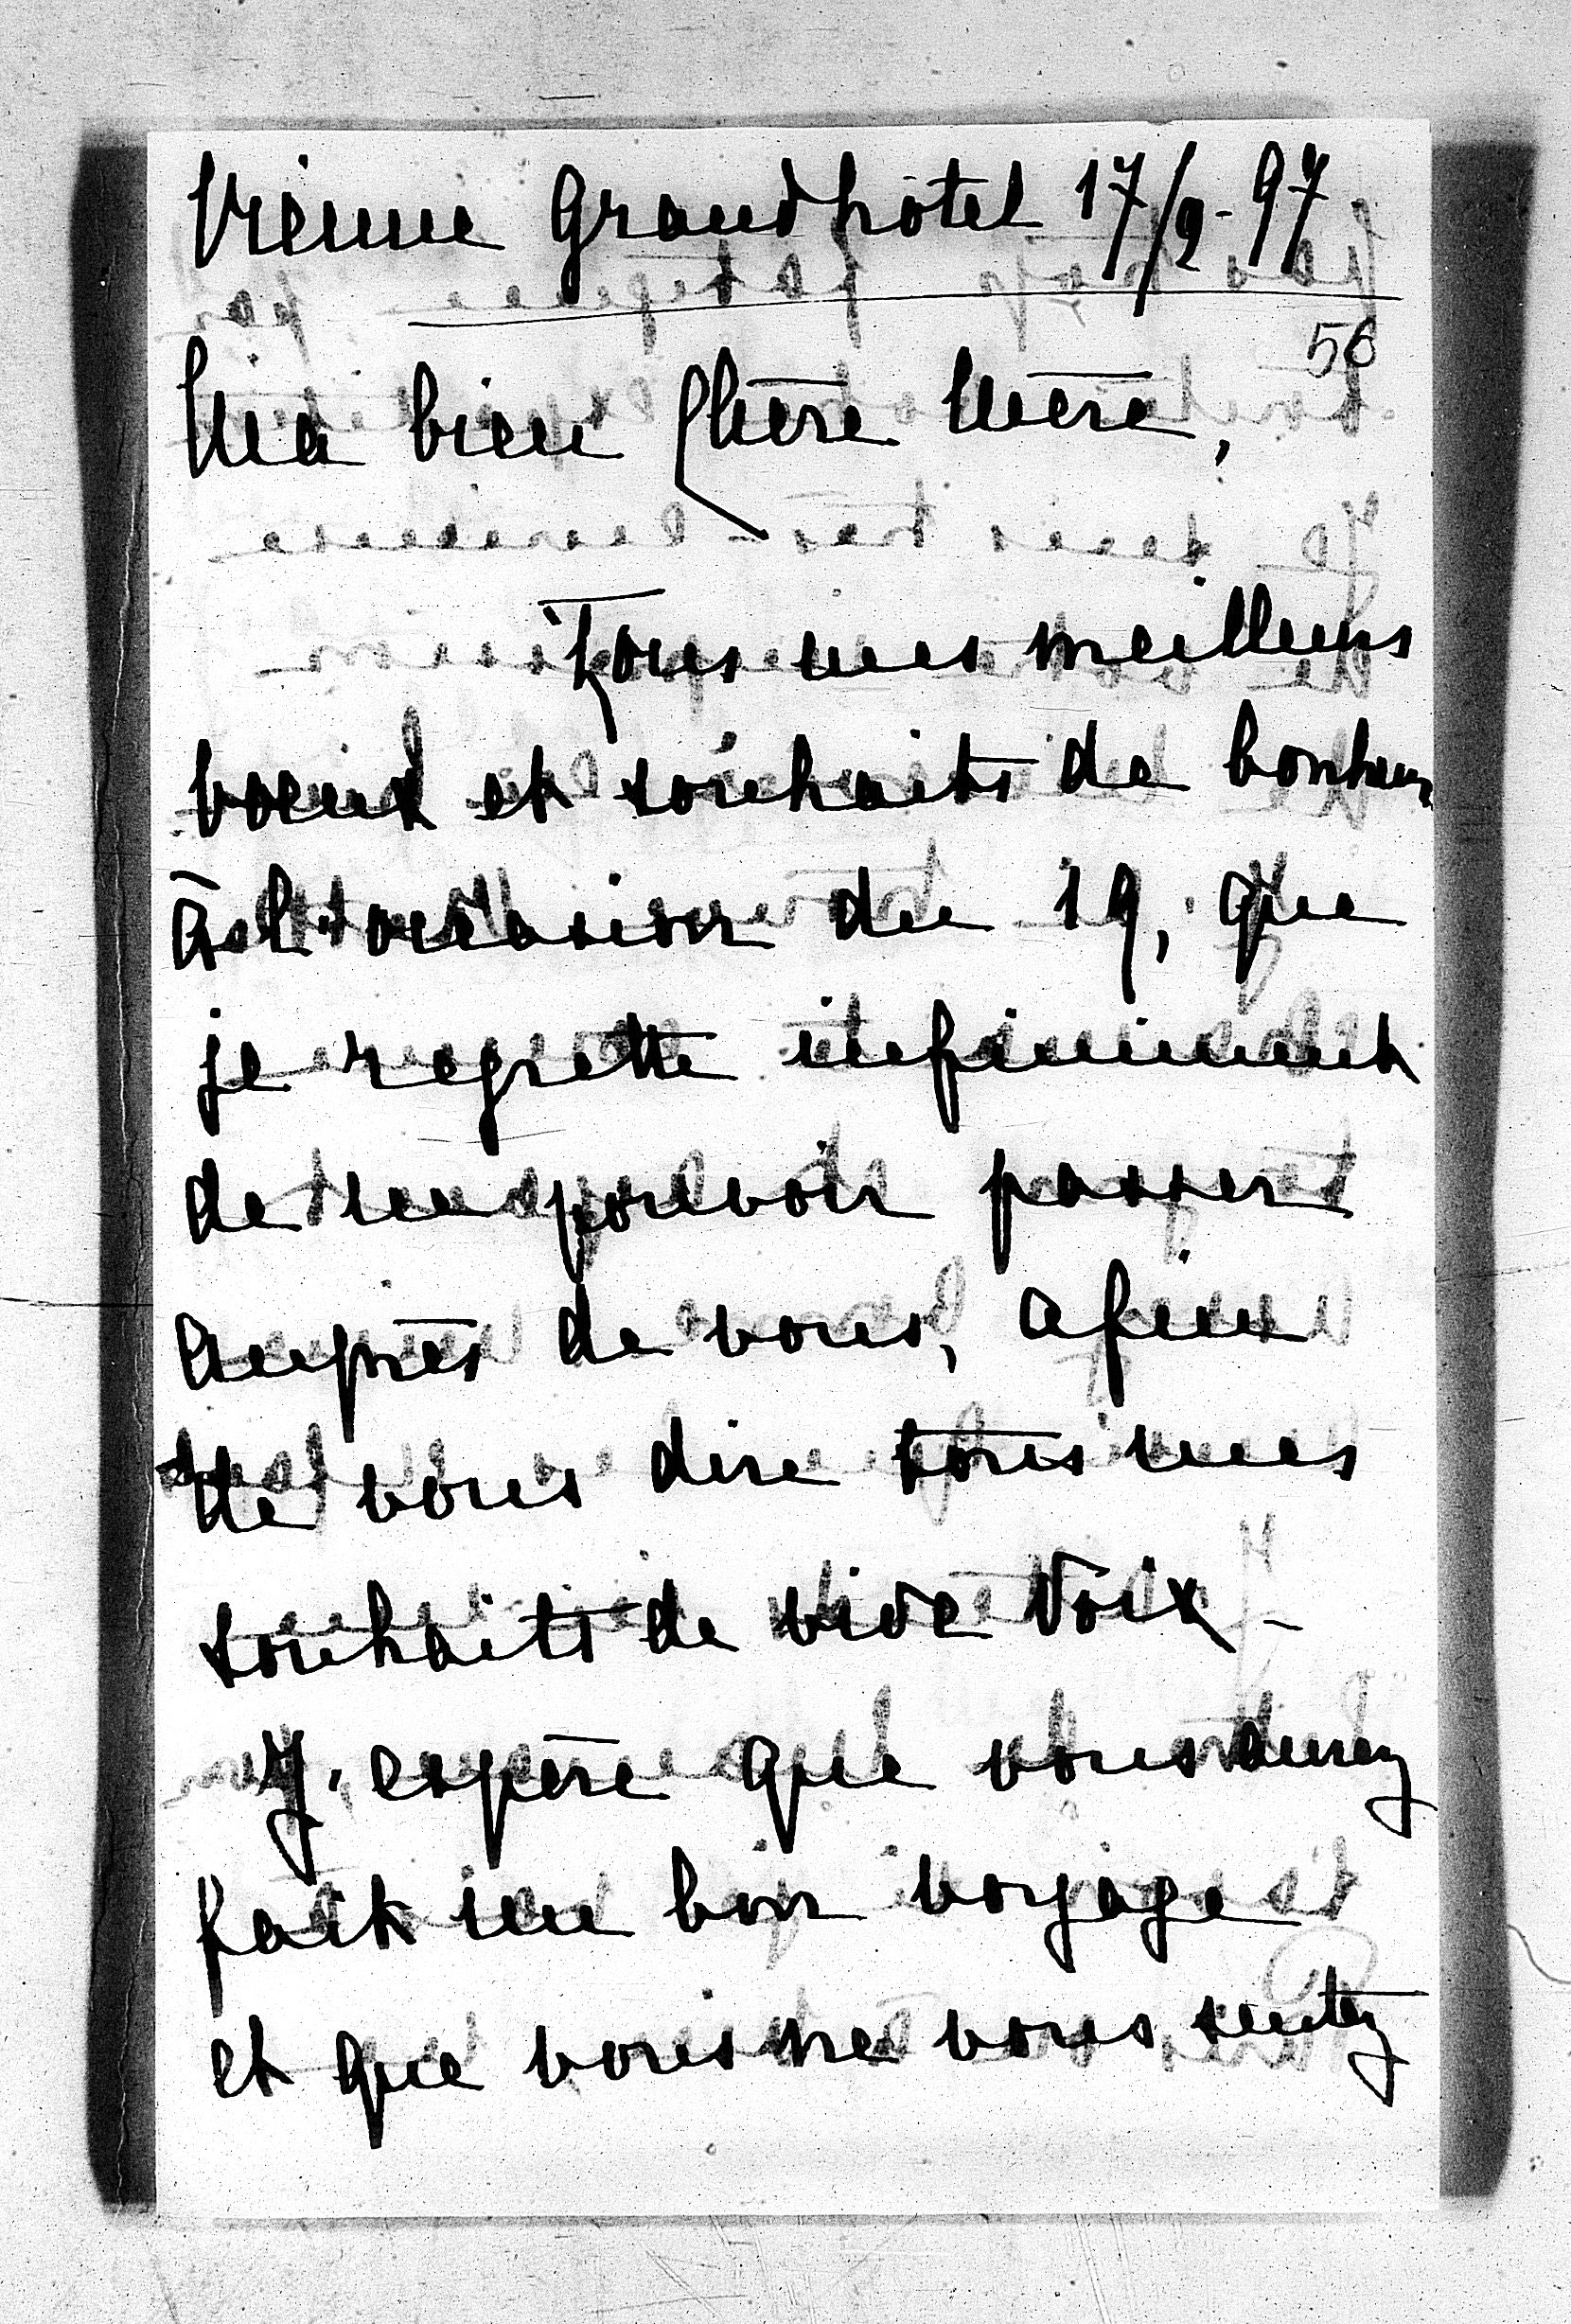 Vienne Grandhôtel 17/9-97.
56
Ma bien Chère Mère,
Tous mes meilleurs
voeux et souhaits de bonheur
à l'occasion du 19, que
je regrette infiniment
de ne pouvoir passer
auprès de vous, afin
de vous dire tous mes
souhaits de vive voix –
J'espère que vous aurez
fait un bon voyage
et que vous ne vous sentez